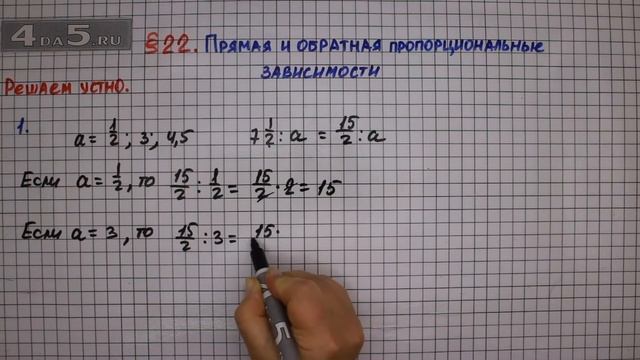 4DA5.RU
§22. Прямая и обратная пропорциональные
зависимости
Решаем устно.
1.
a = 1/2 ; 3 ; 4,5 7 1/2 : a = 15/2 : a
Если a = 1/2, то 15/2 : 1/2 = 15/2 · 2 = 15
Если a = 3, то 15/2 : 3 = 15 ·